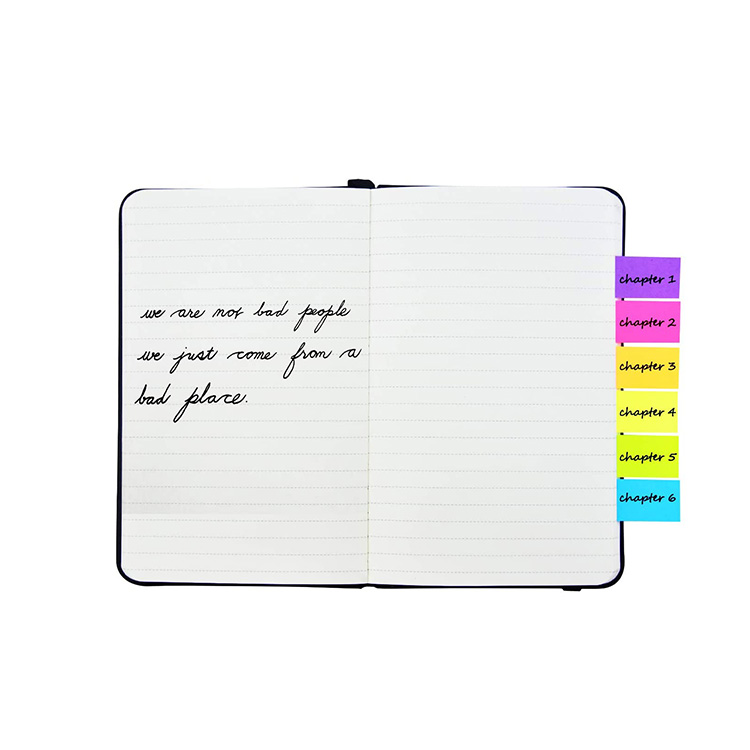 we are not bad people
we just come from a
bad place.
chapter 1
chapter 2
chapter 3
chapter 4
chapter 5
chapter 6